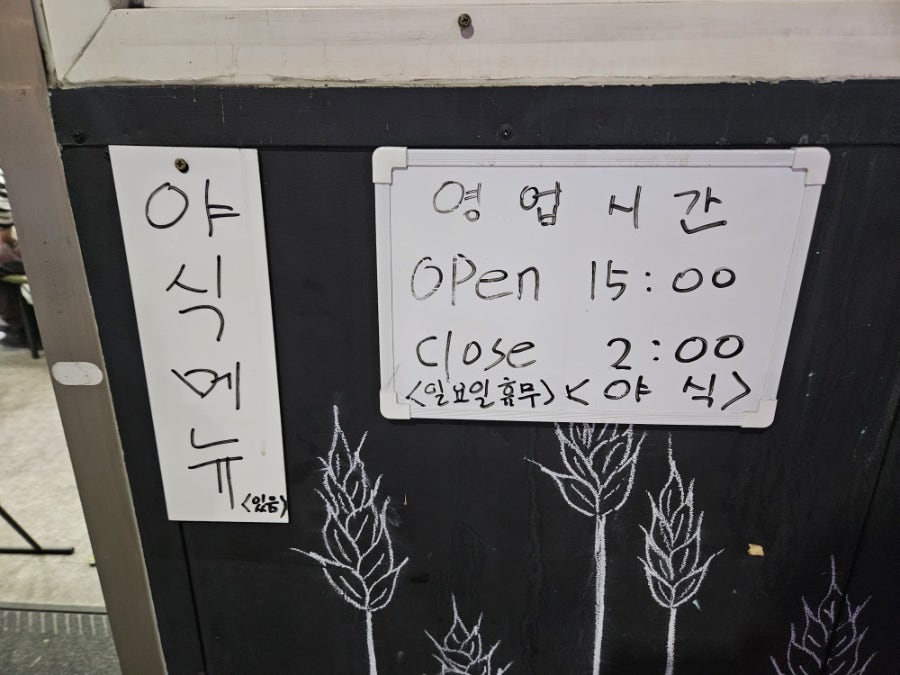 야식메뉴
<있음>
영업시간
Open 15:00
Close 2:00
<일요일휴무> <야식>